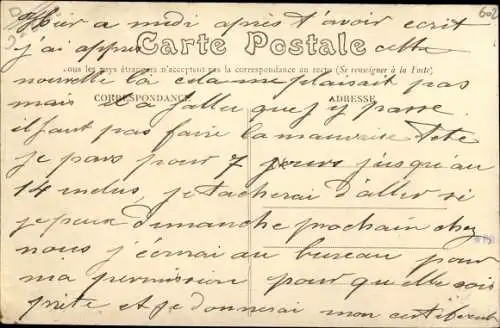 Hier a midi après t'avoir ecrit
j'ai appri cette
Carte Postale
Tous les pays étrangers n'acceptent pas la correspondance au recto (Se renseigner à la Poste)
nouvelle la cela me plaisait pas
CORRESPONDANCE ADRESSE
mais il a fallu que j'y passe
il faut pas faire la mauvaise tete
je pars pour 7 jours jusqu'au
14 inclus, je tacherai d'aller si
je peux dimanche prochain chez
nous j'écrirai au bureau pour
ma permission pour qu'elle sois
prête et je donnerai mon